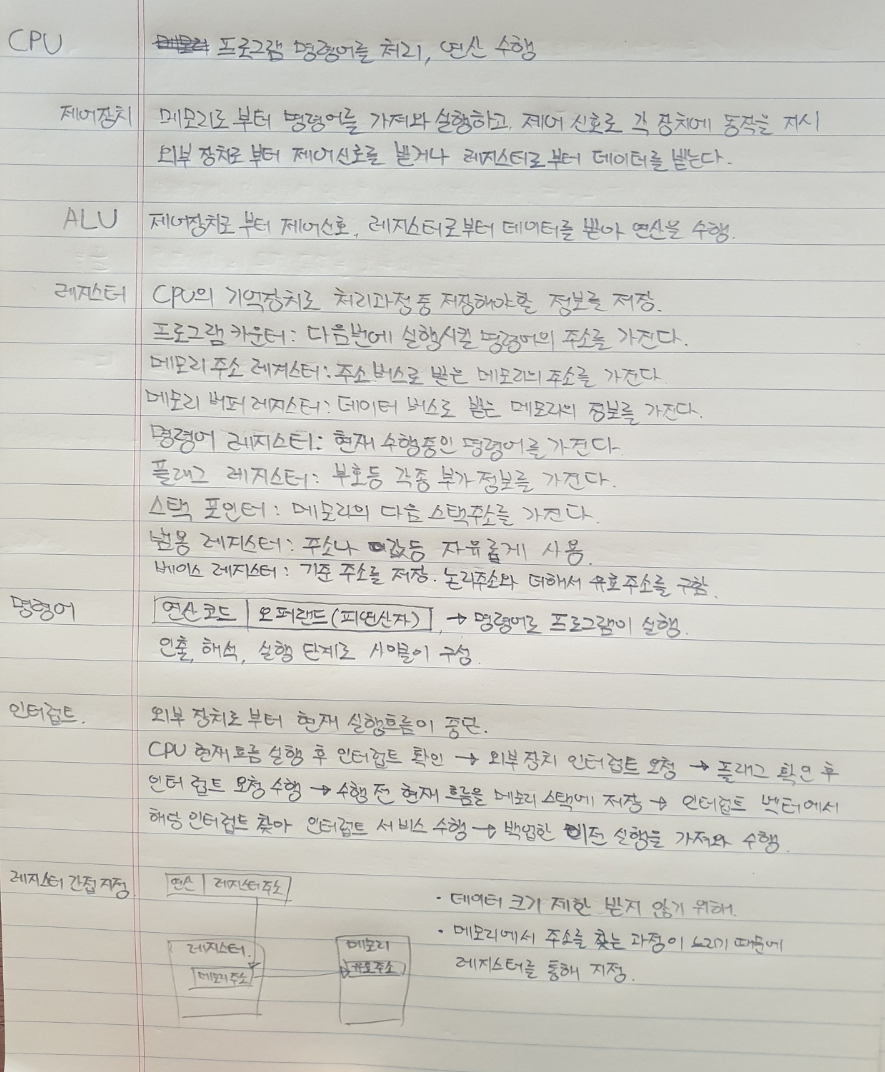 CPU 프로그램 명령어를 처리, 연산 수행
제어장치 메모리로 부터 명령어를 가져와 실행하고, 제어 신호로 각 장치에 동작을 지시
외부 장치로 부터 제어신호를 받거나 레지스터로 부터 데이터를 받는다.
ALU 제어장치로 부터 제어신호, 레지스터로부터 데이터를 받아 연산을 수행.
레지스터 CPU의 기억장치로 처리과정 중 저장해야할 정보를 저장.
프로그램 카운터 : 다음번에 실행시킬 명령어의 주소를 가진다.
메모리 주소 레지스터 : 주소 버스로 받는 메모리의 주소를 가진다
메모리 버퍼 레지스터 : 데이터 버스로 받는 메모리의 정보를 가진다.
명령어 레지스터 : 현재 수행중인 명령어를 가진다.
플래그 레지스터 : 부호등 각종 부가 정보를 가진다.
스택 포인터 : 메모리의 다음 스택주소를 가진다.
범용 레지스터 : 주소나 값등 자유롭게 사용.
베이스 레지스터 : 기준 주소를 저장. 논리주소와 더해서 유효주소를 구함.
명령어 연산코드 | 오퍼랜드(피연산자) → 명령어로 프로그램이 실행.
인출, 해석, 실행 단계로 사이클이 구성.
인터럽트. 외부 장치로 부터 현재 실행흐름이 중단.
CPU 현재 흐름 실행 후 인터럽트 확인 → 외부 장치 인터럽트 요청 → 플래그 확인 후
인터럽트 요청 수행 → 수행 전 현재 흐름을 메모리 스택에 저장 → 인터럽트 벡터에서
해당 인터럽트 찾아 인터럽트 서비스 수행 → 백업한 이전 실행을 가져와 수행.
레지스터 간접 지정 연산 | 레지스터 주소
· 데이터 크기 제한 받지 않기 위해.
· 메모리에서 주소를 찾는 과정이 느리기 때문에
레지스터를 통해 지정.
레지스터.
메모리주소
메모리
유효주소